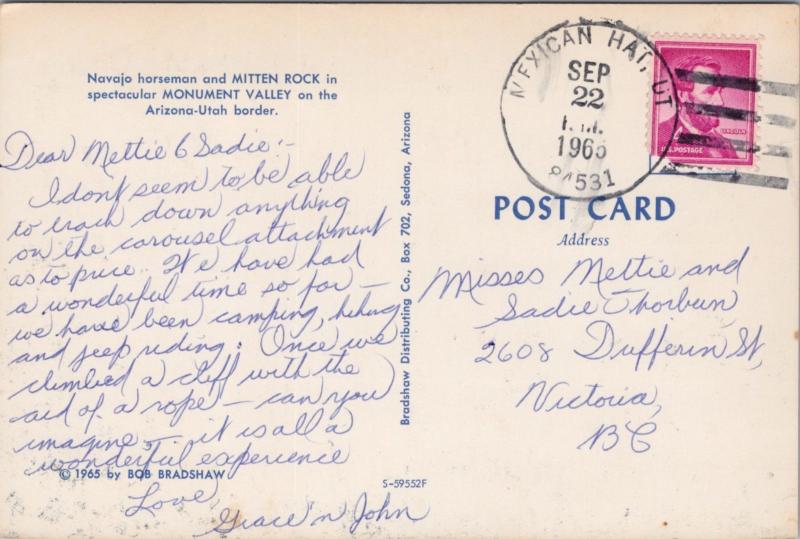 Navajo horseman and MITTEN ROCK in
spectacular MONUMENT VALLEY on the
Arizona-Utah border.
Dear Mettie & Sadie:-
I dont seem to be able
to track down anything
on the carousel attachment
as to price. We have had
a wonderful time so far -
we have been camping, hiking
and jeep riding. Once we
climbed a cliff with the
aid of a rope - can you
imagine - it is all a
wonderful experience
© 1965 by BOB BRADSHAW
Love,
Grace 'n John
S-59552F
Bradshaw Distributing Co., Box 702, Sedona, Arizona
MEXICAN HAT, UT
SEP
22
1965
84531
LINCOLN
U.S. POSTAGE
POST CARD
Address
Misses Mettie and
Sadie Thorburn
2608 Dufferin St,
Victoria,
BC